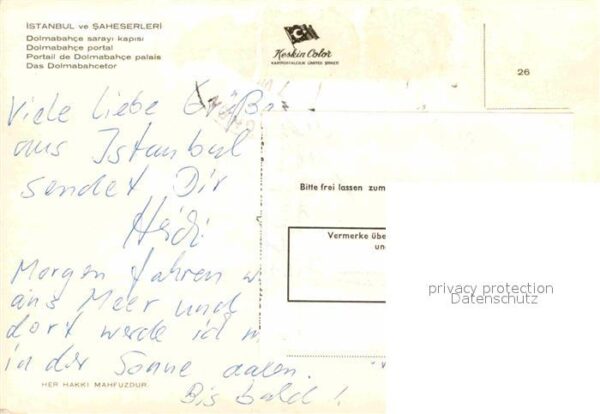 İSTANBUL ve ŞAHESERLERİ
Dolmabahçe sarayı kapısı
Dolmabahçe portal
Portail de Dolmabahçe palais
Das Dolmabahcetor
Keskin Color
KARTPOSTALCILIK LİMİTED ŞİRKETİ
26
Viele liebe Grüße
aus Istanbul
sendet Dir
Heidi
Morgen fahren w
ans Meer und
dort werde ich m
in der Sonne aalen.
Bis bald!
Bitte frei lassen zum
Vermerke übe
un
privacy protection
Datenschutz
HER HAKKI MAHFUZDUR